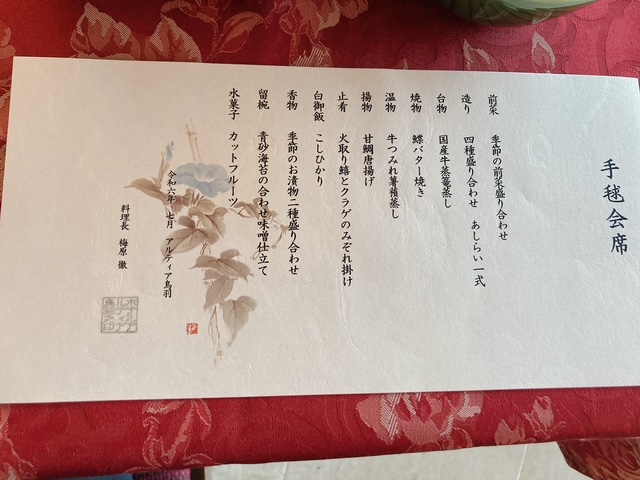 手毬会席
前菜 季節の前菜盛り合わせ
造り 四種盛り合わせ あしらい一式
台物 国産牛蒸篭蒸し
焼物 鰈バター焼き
温物 牛つみれ薯蕷蒸し
揚物 甘鯛唐揚げ
止肴 火取り鱚とクラゲのみぞれ掛け
白御飯 こしひかり
香物 季節のお漬物二種盛り合わせ
留椀 青砂海苔の合わせ味噌仕立て
水菓子 カットフルーツ
令和六年 七月 アルティア鳥羽
料理長 梅原 徹